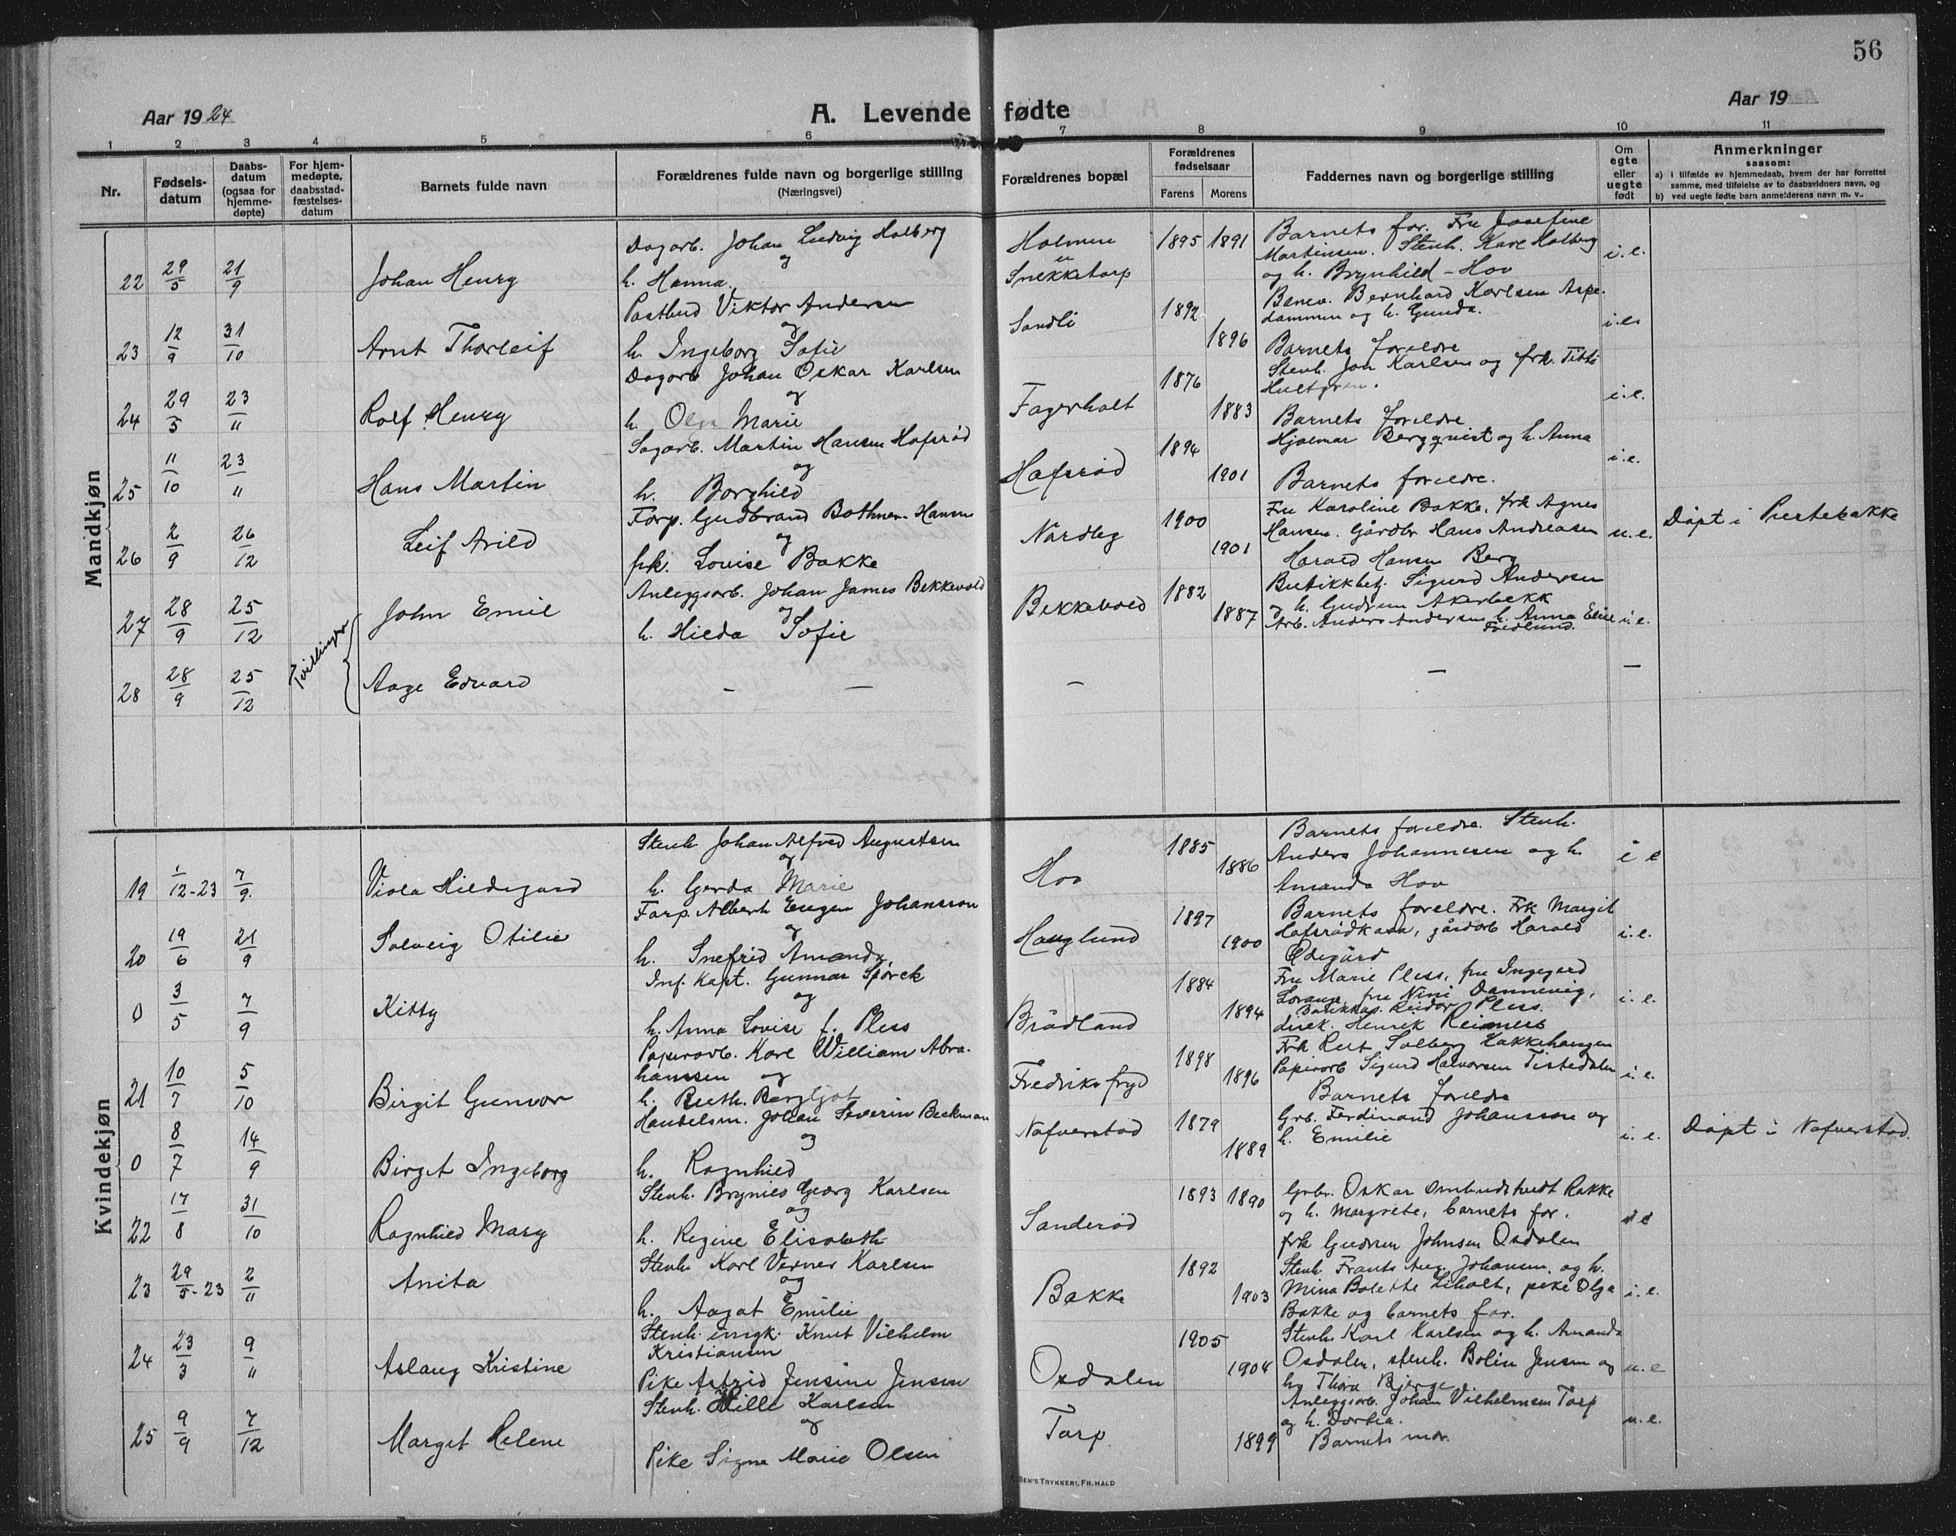 56
Aar 1924
A. Levende fødte
Aar 19
1 2 3 4 5 6 7 8 9 10 11
Nr.
Fødsels-
datum
Daabs-
datum
(ogsaa for
hjemme-
døpte)
For hjem-
medøpte,
daabsstad-
fæstelses-
datum
Barnets fulde navn
Forældrenes fulde navn og borgerlige stilling
(Næringsvei)
Forældrenes bopæl
Forældrenes
fødselsaar
Farens Morens
Faddernes navn og borgerlige stilling
Om
egte
eller
uegte
født
Anmerkninger
saasom:
a) i tilfælde av hjemmedaab, hvem der har forrettet
samme, med tilføielse av to daabsvidners navn, og
b) ved uegte fødte barn anmelderens navn m. v..
Mandkjøn
22 29/5 21/9 Johan Henry
Dagarb. Johan Ludvig Holberg
og
h. Hanna
Holmen
u
Snekketorp
1895 1891
Barnets for. Fru Josefine
Martinsen. Stenh. Kare Holberg
og h. Brynhild - Hov
i.e.
23 12/9 31/10 Arnt Thorleif
Postbud Viktor Andersen
og
h. Ingeborg Sofie
Sandli
1892
1896
Banev. Bernhard Karlsen Aspe-
dammen og h. Gunda.
Barnets foreldre
i.e.
24 29/5 23/11 Rolf Henry
Dagarb Johan Oskar Karlsen
og
h. Olga Marie
Fagerholt
1876
1883
Stenh. Jon Karlsen og frk. Titti
Hultgren.
Barnets foreldre
i.e.
25 11/10 23/11 Hans Martin
Sagarb. Martin Hansen Hafsrød
og
h. Borghild
Hafsrød
1894
1901
Hjalmar Bergqvist og h. Anna
Barnets foreldre.
i.e.
26 2/9 26/12 Leif Arild
Forp. Gudbrand Bothner-Hansen
og
frk. Lovise Bakke
Nordleg
1900
1901
Fru Karoline Bakke, frk Agnes
Hansen. Gårdbr Hans Andreasen
Harald Hansen Berg
u.e.
Døpt i Prestebakke
27 28/9 25/12 John Emil
Tvillinger
Anleggsarb. Johan James Bekkevold
og
h. Hilda Sofie
Bekkevold
1882
1887
Butikkbetj. Sigurd Andersen
og h. Gudrun Akerbekk
Arb. Anders Andersen h. Anna Elise
Fredlund.
i.e.
28 28/9 25/12 Aage Edvard
— — — — —
Kvindekjøn
19 1/12-23 7/9 Viola Hildegard
Stenh Johan Alfred Augustsen
og
h. Gerda Marie
Hov
1885
1886
Barnets foreldre. Stenh.
Anders Johannesen og h
Amanda Hov
i e
20 19/6 21/9 Solveig Otilie
Forp Albert Eugen Johansson
og
h. Snefrid Amanda
Hauglund
1897
1900
Barnets foreldre. Frk Margit
Hafsrødkasa, gårdarb Harald
Ødegård
i.e.
0 3/5 7/9 Kitty
Inf. Kapt. Gunnar Spørck
og
h. Anna Lovise f. Pless
Brådland
1884
1894
Fru Marie Pless, fru Ingegerd
Lorange, fru Nini Dannevig,
Reidar Pless.
direk. Henrik Reimers
i.e.
21 10/7 5/10 Birgit Gunvor
Papirarb. Karl William Abra-
hamssen og
h. Ruth Bergljot
Fredriksfryd
1898
1896
Frk Rut Solberg Hakkehaugen
Papirarb Sigurd Halvorsen Tistedalen
Barnets foreldre
i.e.
0 8/7 14/9 Birget Ingeborg
Handelsm. Johan Severin Beckman
og
h. Ragnhild
Nafverstad
1879
1889
Grb. Ferdinand Johansson og
h. Emilie
i.e.
Døpt i Nafverstad.
22 17/8 31/10 Ragnhild Mary
Stenh. Brynies Georg Karlsen
og
h. Regine Elisabeth
Sanderød
1893 1890
Grbr. Oskar Ombudstvedt Rakke
og h. Margrete, barnets for.
frk Gudrun Johnsen Osdalen
23 29/5-23 2/11 Anita
Stenh Karl Verner Karlsen
og
h. Aagot Emilie
Bakke
1892
1903
Stenh. Frants Aug. Johansen og h.
Mina Bolette Liholt, pike Olga
Bakke og barnets for.
i.e.
24 23/3 9/11 Aslaug Kristine
Stenh. ungk. Knut Vilhelm
Kristiansen
Pike Astrid Jensine Jensen
Osdalen
1905
1904
Stenh. Karl Karlsen og h. Amanda
Osdalen, stenh. Bolin Jensen og
h. Thora Bjerge
u.e
25 9/9 7/12 Margit Helene
Stenh. Hille Karlsen
og
Pike Signe Marie Olsen
Torp
1899
Anleggsarb. Johan Vilhelmsen Torp
og h. Dortea.
Barnets mor.
u.e.
SEN'S TRYKKERI, FR.HALD